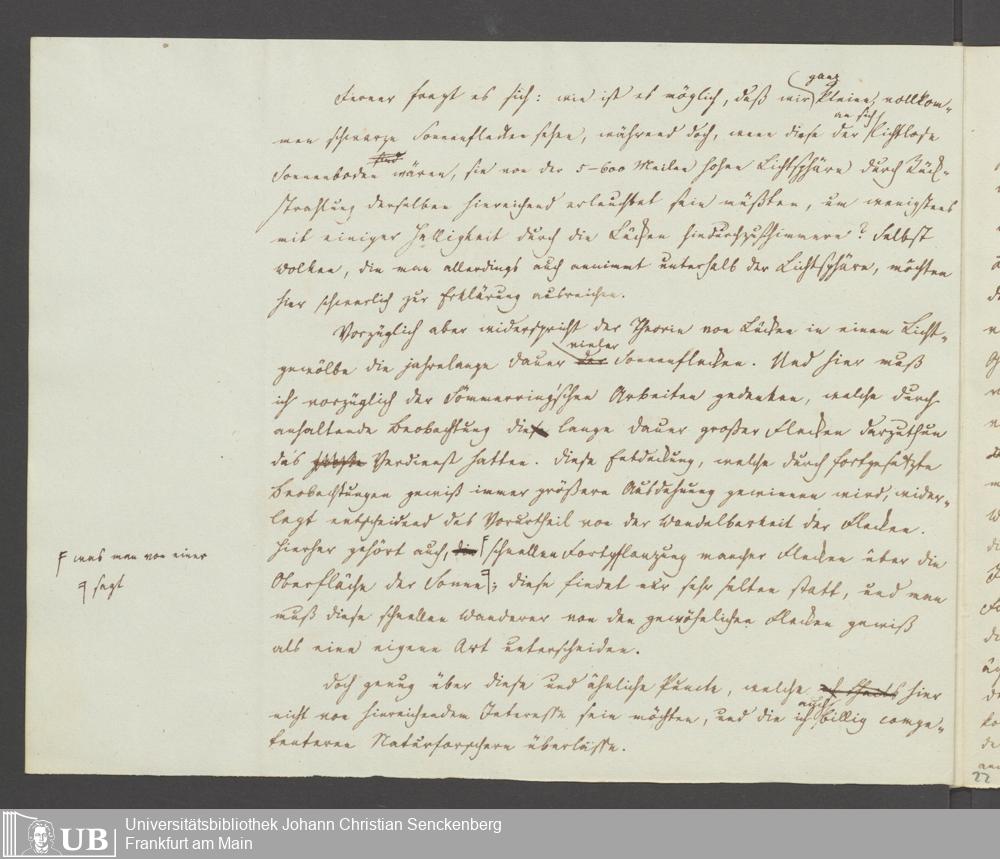 Ferner fragt es sich: wie ist es möglich, daß wir ganz kleine, vollkom-
men schwarze Sonnenflecken sehen, während doch, wenn diese der an sich lichtlose
Sonnenboden sind wären, sie von der 5-600 Meilen hohen Lichtsphäre durch Rück-
strahlung derselben hinreichend erleuchtet sein müßten, um wenigstens
mit einiger Helligkeit durch die Lücken hindurchzuschimmern? Selbst
Wolken, die man allerdings auch annimmt unterhalb der Lichtsphäre, möchten
hier schwerlich zur Erklärung ausreichen.
Vorzüglich aber widerspricht der Theorie von Lücken in einem Licht-
gewölbe die jahrelange Dauer der vieler Sonnenflecken. Und hier muß
ich vorzüglich der Sömmerring'schen Arbeiten gedenken, welche durch
anhaltende Beobachtung die lange Dauer großer Flecken darzuthun
das Verdienst hatten. Diese Entdeckung, welche durch fortgesetzte
Beobachtungen gewiß immer größere Ausdehnung gewinnen wird, wider-
legt entscheidend das Vorurtheil von der Wandelbarkeit der Flecken.
Hierher gehört auch, die schnellen Fortpflanzung mancher Flecken über die
Oberfläche der Sonne; diese findet nur sehr selten statt, und man
muß diese schnellen Wanderer von den gewöhnlichen Flecken gewiß
als eine eigene Art unterscheiden.
Doch genug über diese und ähnliche Puncte, welche hier
nicht von hinreichendem Interesse sein möchten, und die ich auch billig compe-
tenteren Naturforschern überlasse.
was man von einer
sagt
22
UB
Universitätsbibliothek Johann Christian Senckenberg
Frankfurt am Main